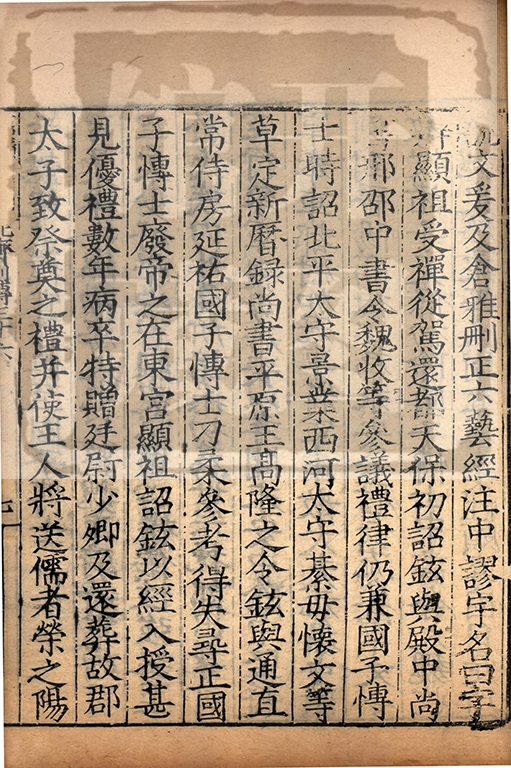 説文爰及倉雅刪正六藝經注中謬字名曰字
辨顯祖受禪從駕還都天保初詔鉉與殿中尚
書邢邵中書令魏收等參議禮律仍兼國子愽
士時詔北平太守景業西河太守綦毋懷文等
草定新曆録尚書平原王髙隆之令鉉與通直
常侍房延祐國子愽士刁柔參考得失尋正國
子愽士廢帝之在東宮顯祖詔鉉以經入授甚
見優禮數年病卒特贈廷尉少卿及還葬故郡
太子致祭奠之禮并使王人將送儒者榮之陽